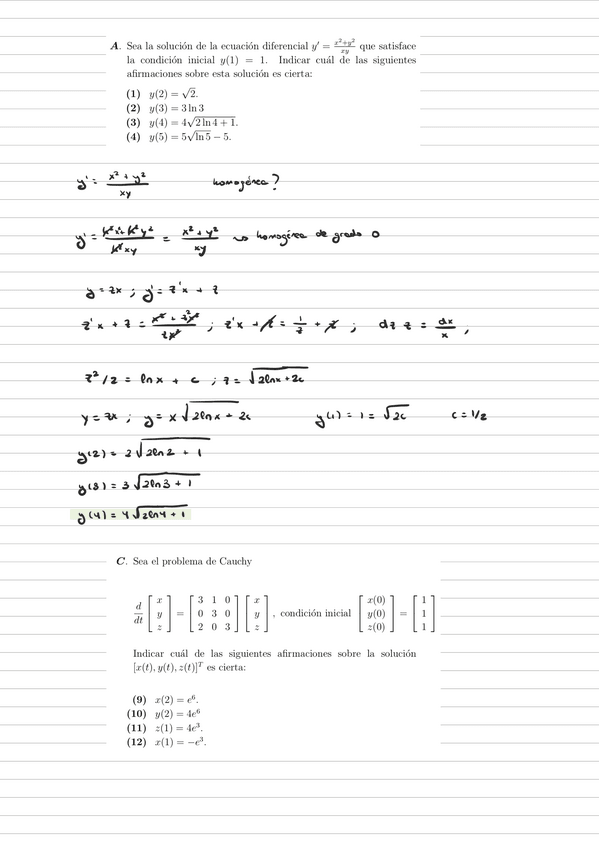 A. Sea la solución de la ecuación diferencial y' = (x²+y²)/(xy) que satisface
la condición inicial y(1) = 1. Indicar cuál de las siguientes
afirmaciones sobre esta solución es cierta:
(1) y(2) = √2.
(2) y(3) = 3 ln 3
(3) y(4) = 4√(2 ln 4 + 1).
(4) y(5) = 5√(ln 5) − 5.
y' = (x² + y²)/(xy) homogénea?
y' = (k²x² + k²y²)/(k²xy) = (x² + y²)/(xy) ↝ homogénea de grado 0
y = zx ; y' = z'x + z
z'x + z = (x² + z²x²)/(zx²) ; z'x + z = 1/z + z ; dz z = dx/x ,
z²/2 = ln x + c ; z = √(2lnx + 2c)
y = zx ; y = x√(2lnx + 2c) y(1) = 1 = √2c c = 1/2
y(2) = 2√(2ln2 + 1)
y(3) = 3√(2ln3 + 1)
y(4) = 4√(2ln4 + 1)
C. Sea el problema de Cauchy
d/dt [x y z] = [3 1 0; 0 3 0; 2 0 3] [x y z] , condición inicial [x(0) y(0) z(0)] = [1 1 1]
Indicar cuál de las siguientes afirmaciones sobre la solución
[x(t), y(t), z(t)]ᵀ es cierta:
(9) x(2) = e⁶.
(10) y(2) = 4e⁶
(11) z(1) = 4e³.
(12) x(1) = −e³.